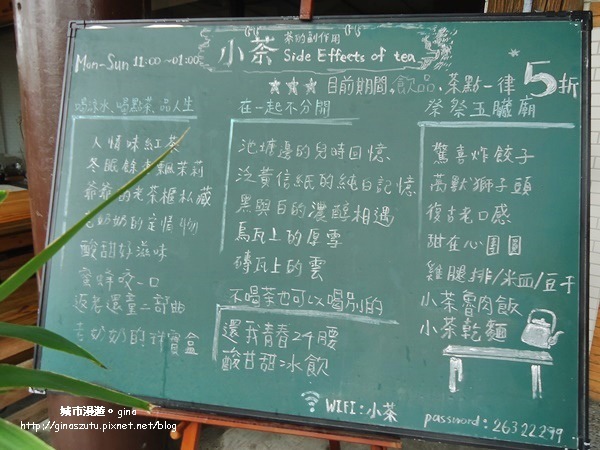 茶的副作用
小茶 Side Effects of tea
Mon-Sun 11:00~01:00
★★★ 目前期間,飲品、茶點一律5折
喝涼水、喝點茶、品人生
人情味紅茶
爺爺的老茶櫃私藏
老奶奶的定情物
酸甜好滋味
蜜蜂咬一口
返老還童二部曲
在一起不分開
池塘邊的兒時回憶
泛黃信紙的純白記憶
黑與白的濃醇相遇
烏瓦上的厚雪
磚瓦上的雲
不喝茶也可以喝別的
還我青春24腰
酸甘甜冰飲
祭祭五臟廟
驚喜炸餃子
萬獸獅子頭
復古老口感
甜在心圓圓
雞腿排/米血/豆干
小茶魯肉飯
小茶乾麵
WIFI:小茶
password:26322299
城市漫遊。gina
http://ginaszutu.pixnet.net/blog